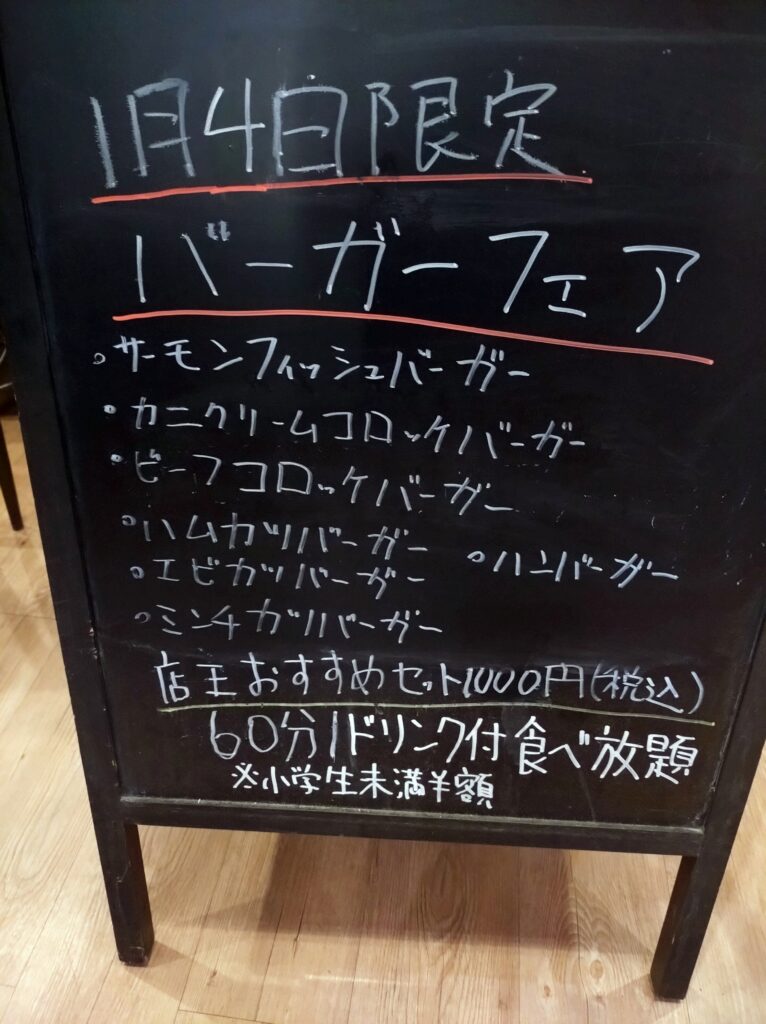 1月4日限定
バーガーフェア
。サーモンフィッシュバーガー
。カニクリームコロッケバーガー
。ビーフコロッケバーガー
。ハムカツバーガー
。ハンバーガー
。エビカツバーガー
。ミンチカツバーガー
店王おすすめセット1000円(税込)
60分1ドリンク付食べ放題
※小学生未満半額